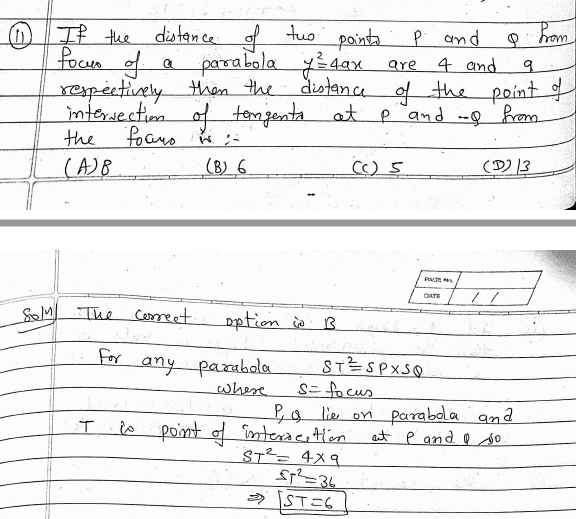 (11) If the distance of two points P and Q from
focus of a parabola y²=4ax are 4 and 9
respectively then the distance of the point of
intersection of tangents at P and -Q from
the focus is :-
(A) 8 (B) 6 (C) 5 (D) 13
PAGE No.
DATE / /
Solⁿ The correct option is B
For any parabola ST²=SP×SQ
where S= focus
P, Q lie on parabola and
T is point of intersection at P and Q so
ST²= 4×9
ST²=36
⇒ ST=6